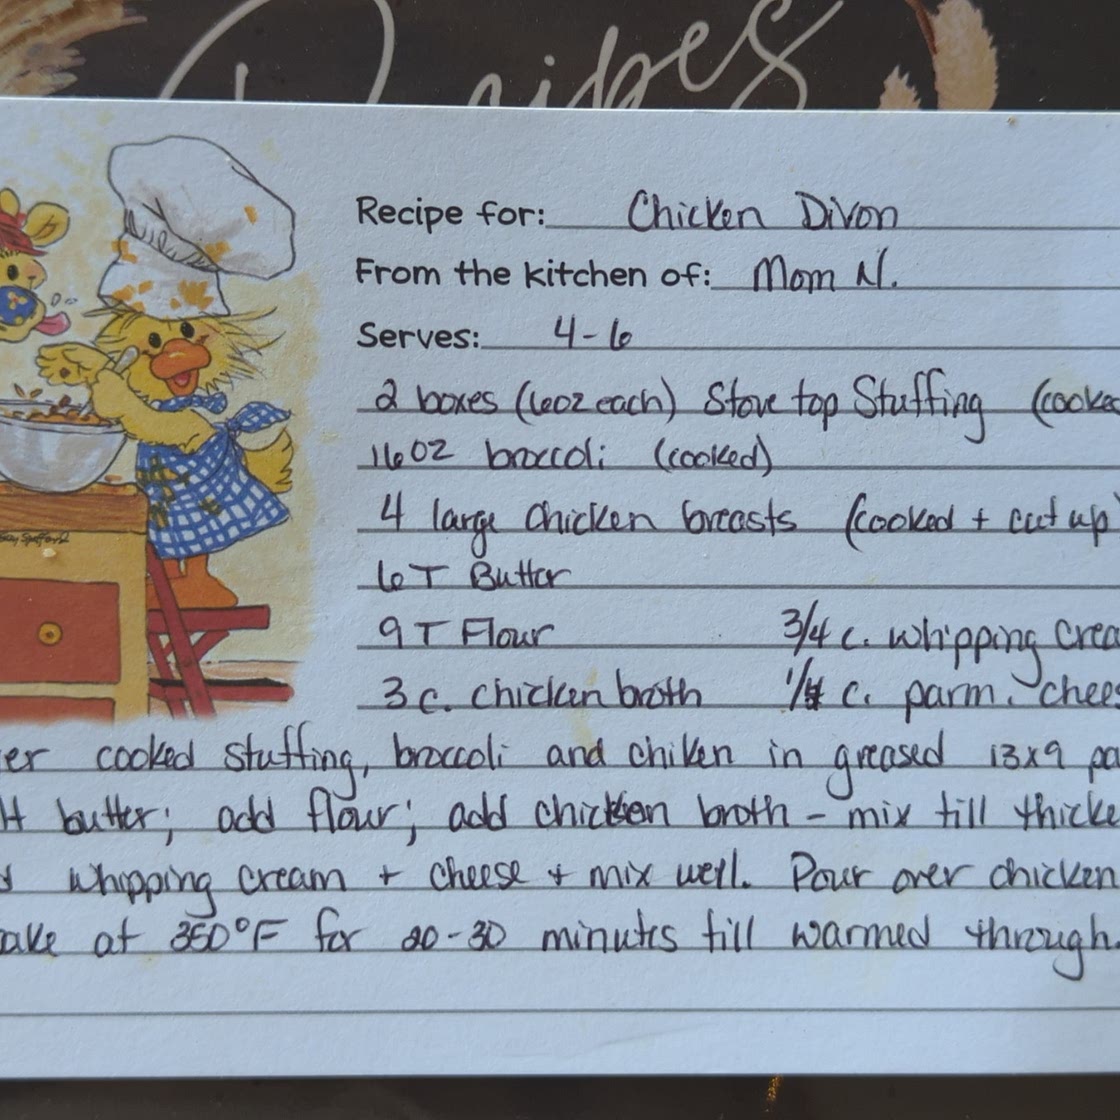 Recipes
Recipe for: Chicken Divon
From the kitchen of: Mom N.
Serves: 4-6
2 boxes (6oz each) Stove top Stuffing (cooke
16oz broccoli (cooked)
4 large chicken breasts (cooked + cut up)
6 T Butter
9 T Flour 3/4 c. whipping crea
3 c. chicken broth c. parm. chees
er cooked stuffing, broccoli and chiken in greased 13x9 pa
lt butter; add flour; add chicken broth - mix till thicke
d whipping cream + cheese + mix well. Pour over chicken
ake at 350°F for 20-30 minutes till warmed through.